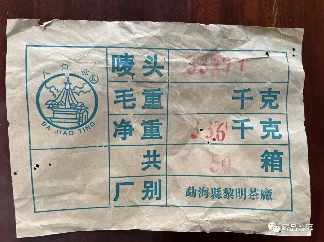 八角亭
BA JIAO TING
唛头
毛重 千克
净重 336 千克
共 50 箱
厂别 勐海縣黎明茶廠